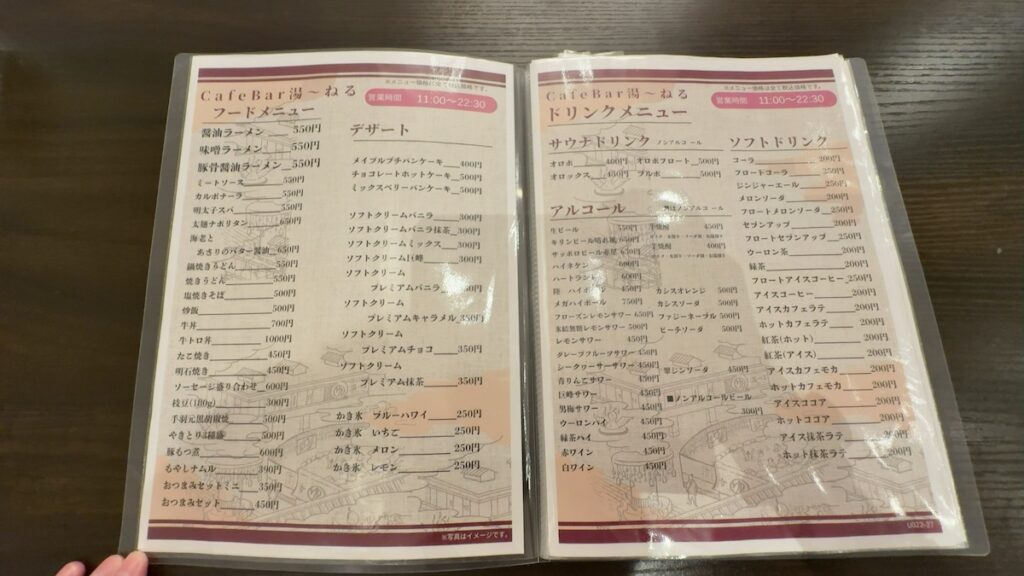 ※メニュー価格は全て税込価格です。
CafeBar湯～ねる
営業時間 11:00～22:30
フードメニュー
醤油ラーメン 550円
味噌ラーメン 550円
豚骨醤油ラーメン 550円
ミートソース 550円
カルボナーラ 550円
明太子スパ 550円
太麺ナポリタン 650円
海老と
あさりのバター醤油 650円
鍋焼きうどん 550円
焼きうどん 550円
塩焼きそば 500円
炒飯 500円
牛丼 700円
牛トロ丼 1000円
たこ焼き 450円
明石焼き 450円
ソーセージ盛り合わせ 600円
枝豆(180g) 300円
手羽元黒胡椒焼 500円
やきとり3種盛 500円
豚もつ煮 600円
もやしナムル 390円
おつまみセットミニ 350円
おつまみセット 450円
デザート
メイプルプチパンケーキ 400円
チョコレートホットケーキ 500円
ミックスベリーパンケーキ 500円
ソフトクリームバニラ 300円
ソフトクリームバニラ抹茶 300円
ソフトクリームミックス 300円
ソフトクリーム巨峰 300円
ソフトクリーム
プレミアムバニラ 350円
ソフトクリーム
プレミアムキャラメル 350円
ソフトクリーム
プレミアムチョコ 350円
ソフトクリーム
プレミアム抹茶 350円
かき氷 ブルーハワイ 250円
かき氷 いちご 250円
かき氷 メロン 250円
かき氷 レモン 250円
※写真はイメージです。
※メニュー価格は全て税込価格です。
CafeBar湯～ねる
営業時間 11:00～22:30
ドリンクメニュー
サウナドリンク ノンアルコール
オロポ 400円 オロポフロート 500円
オロックス 450円 ブルポ 500円
アルコール
生ビール 550円
キリンビール晴れ風 650円
サッポロビール赤星 650円
ハイネケン 600円
ハートランド 600円
陸 ハイボール 450円
メガハイボール 750円
フローズンレモンサワー 650円
氷結無糖レモンサワー 500円
レモンサワー 450円
グレープフルーツサワー 450円
シークヮーサーサワー 450円
青りんごサワー 450円
巨峰サワー 450円
男梅サワー 450円
ウーロンハイ 450円
緑茶ハイ 450円
赤ワイン 450円
白ワイン 450円
芋焼酎 450円
400円
カシスオレンジ 500円
カシスソーダ 500円
ファジーネーブル 500円
ピーチソーダ 500円
翠ジンソーダ 450円
■ノンアルコールビール
300円
ソフトドリンク
コーラ 200円
フロートコーラ 250円
ジンジャーエール 250円
メロンソーダ 200円
フロートメロンソーダ 250円
セブンアップ 200円
フロートセブンアップ 250円
ウーロン茶 200円
緑茶 200円
フロートアイスコーヒー 250円
アイスコーヒー 200円
アイスカフェラテ 200円
ホットカフェラテ 200円
紅茶(ホット) 200円
紅茶(アイス) 200円
アイスカフェモカ 200円
ホットカフェモカ 200円
アイスココア 200円
ホットココア 200円
アイス抹茶ラテ 200円
ホット抹茶ラテ 200円